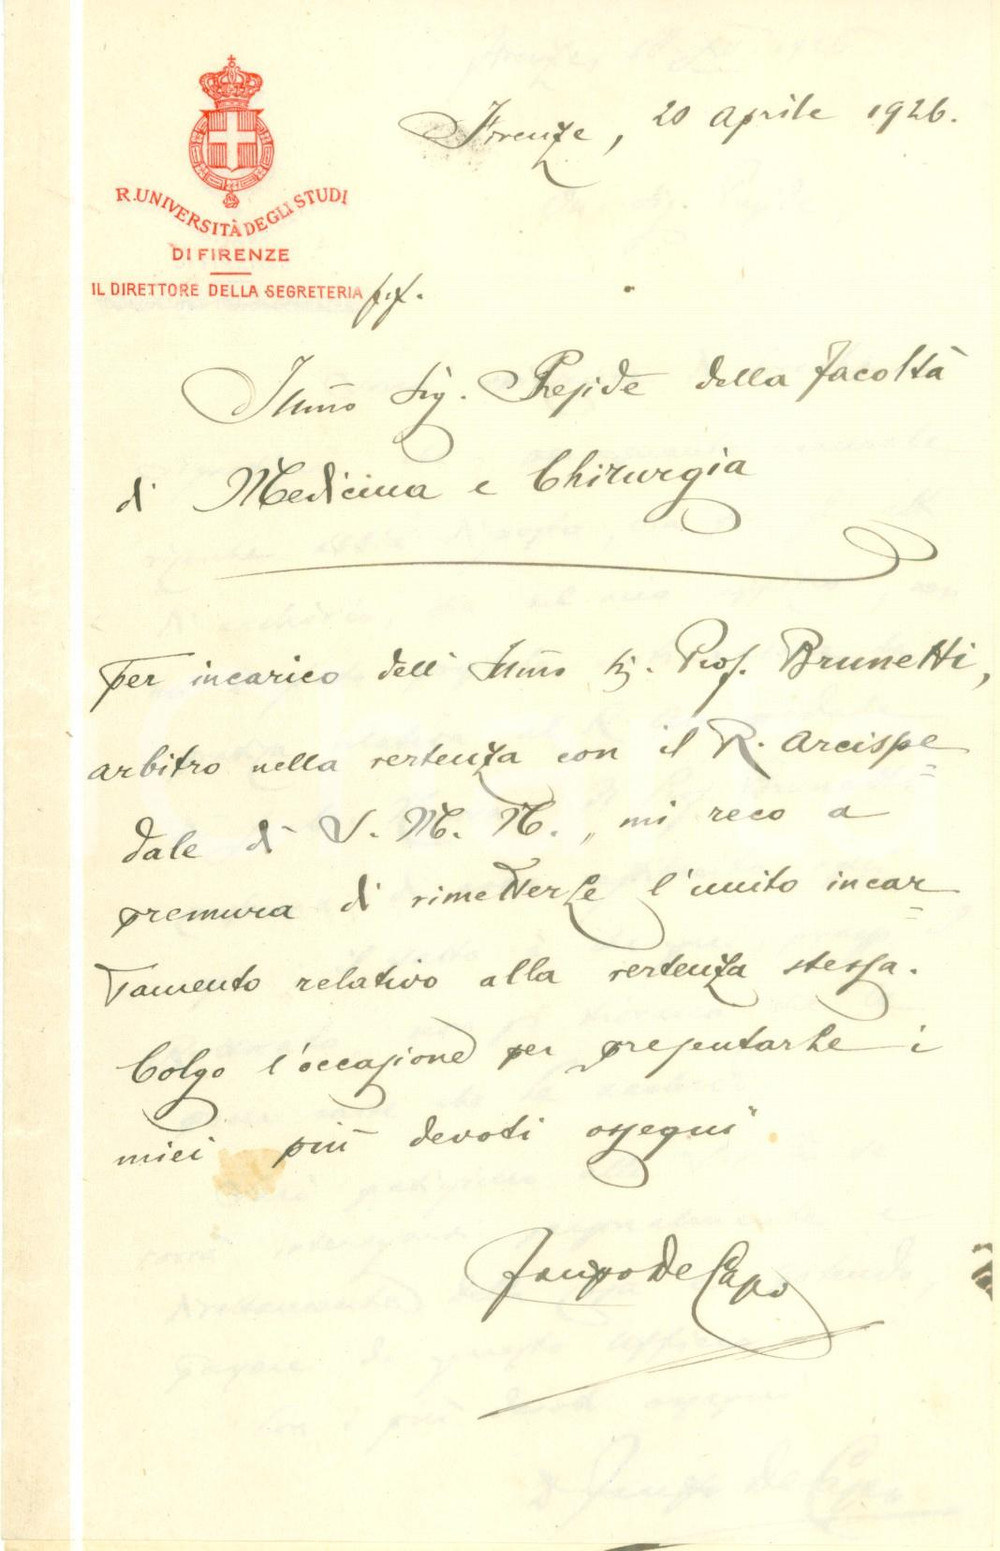 R. UNIVERSITÀ DEGLI STUDI
DI FIRENZE
IL DIRETTORE DELLA SEGRETERIA ff.
Firenze, 20 Aprile 1926.
Illmo Sig. Preside della Facoltà
di Medicina e Chirurgia
Per incarico dell' Illmo Sig. Prof. Brunetti,
arbitro nella vertenza con il R. Arcispe=
dale di S. M. N., mi reco a
premura di rimetterLe l'unito incar=
tamento relativo alla vertenza stessa.
Colgo l'occasione per presentarLe i
miei più devoti ossequi
De Capo